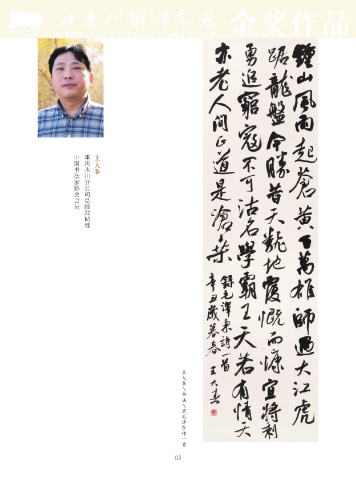 金奖作品
鍾山風雨起蒼黄百萬雄師過大江虎
踞龍盤今勝昔天翻地覆慨而慷宜將剩
勇追窮寇不可沽名學霸王天若有情天
亦老人間正道是滄桑
錄毛澤東詩一首
辛丑歲暮春 王大春
王大春
重庆永川分公司总经理助理
中国书法家协会会员
王大春\书法\录毛泽东诗一首
03